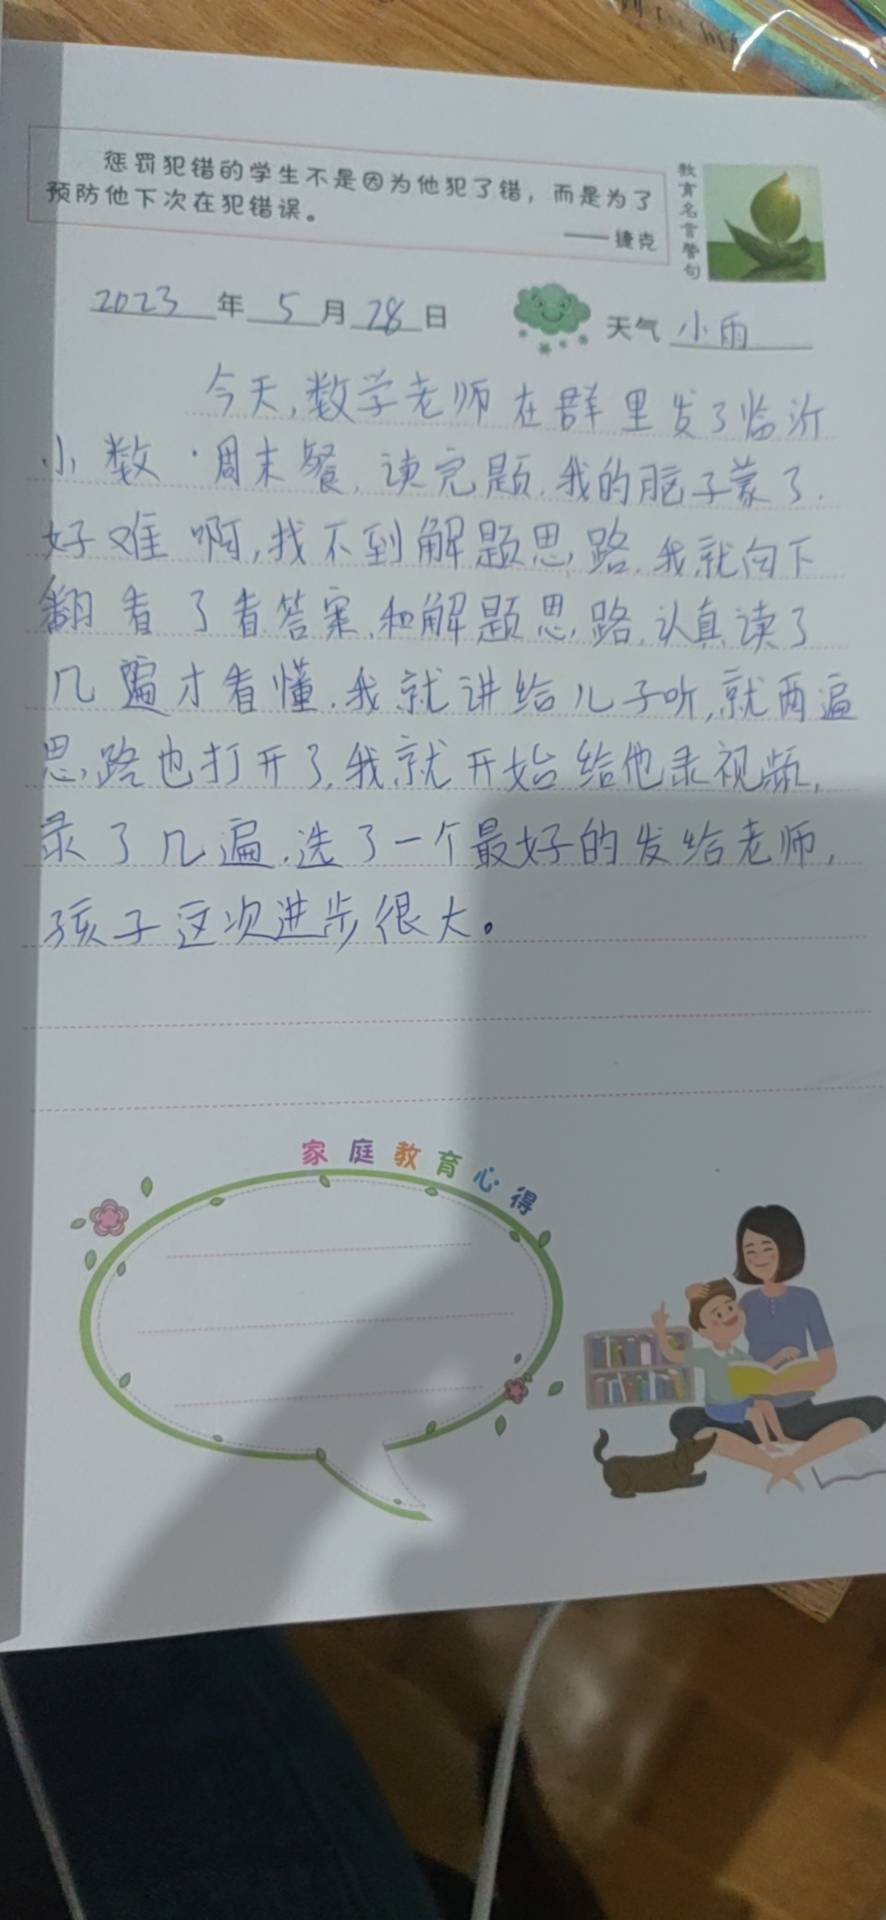 惩罚犯错的学生不是因为他犯了错，而是为了
预防他下次在犯错误。
——捷克
教育名言警句
2023年5月28日
天气 小雨
今天,数学老师在群里发了临沂
小数·周末餐,读完题,我的脑子蒙了.
好难啊,找不到解题思路.我就向下
翻看了看答案,和解题思路.认真读了
几遍才看懂.我就讲给儿子听,就两遍
思路也打开了,我就开始给他录视频,
录了几遍.选了一个最好的发给老师,
孩子这次进步很大。
家庭教育心得